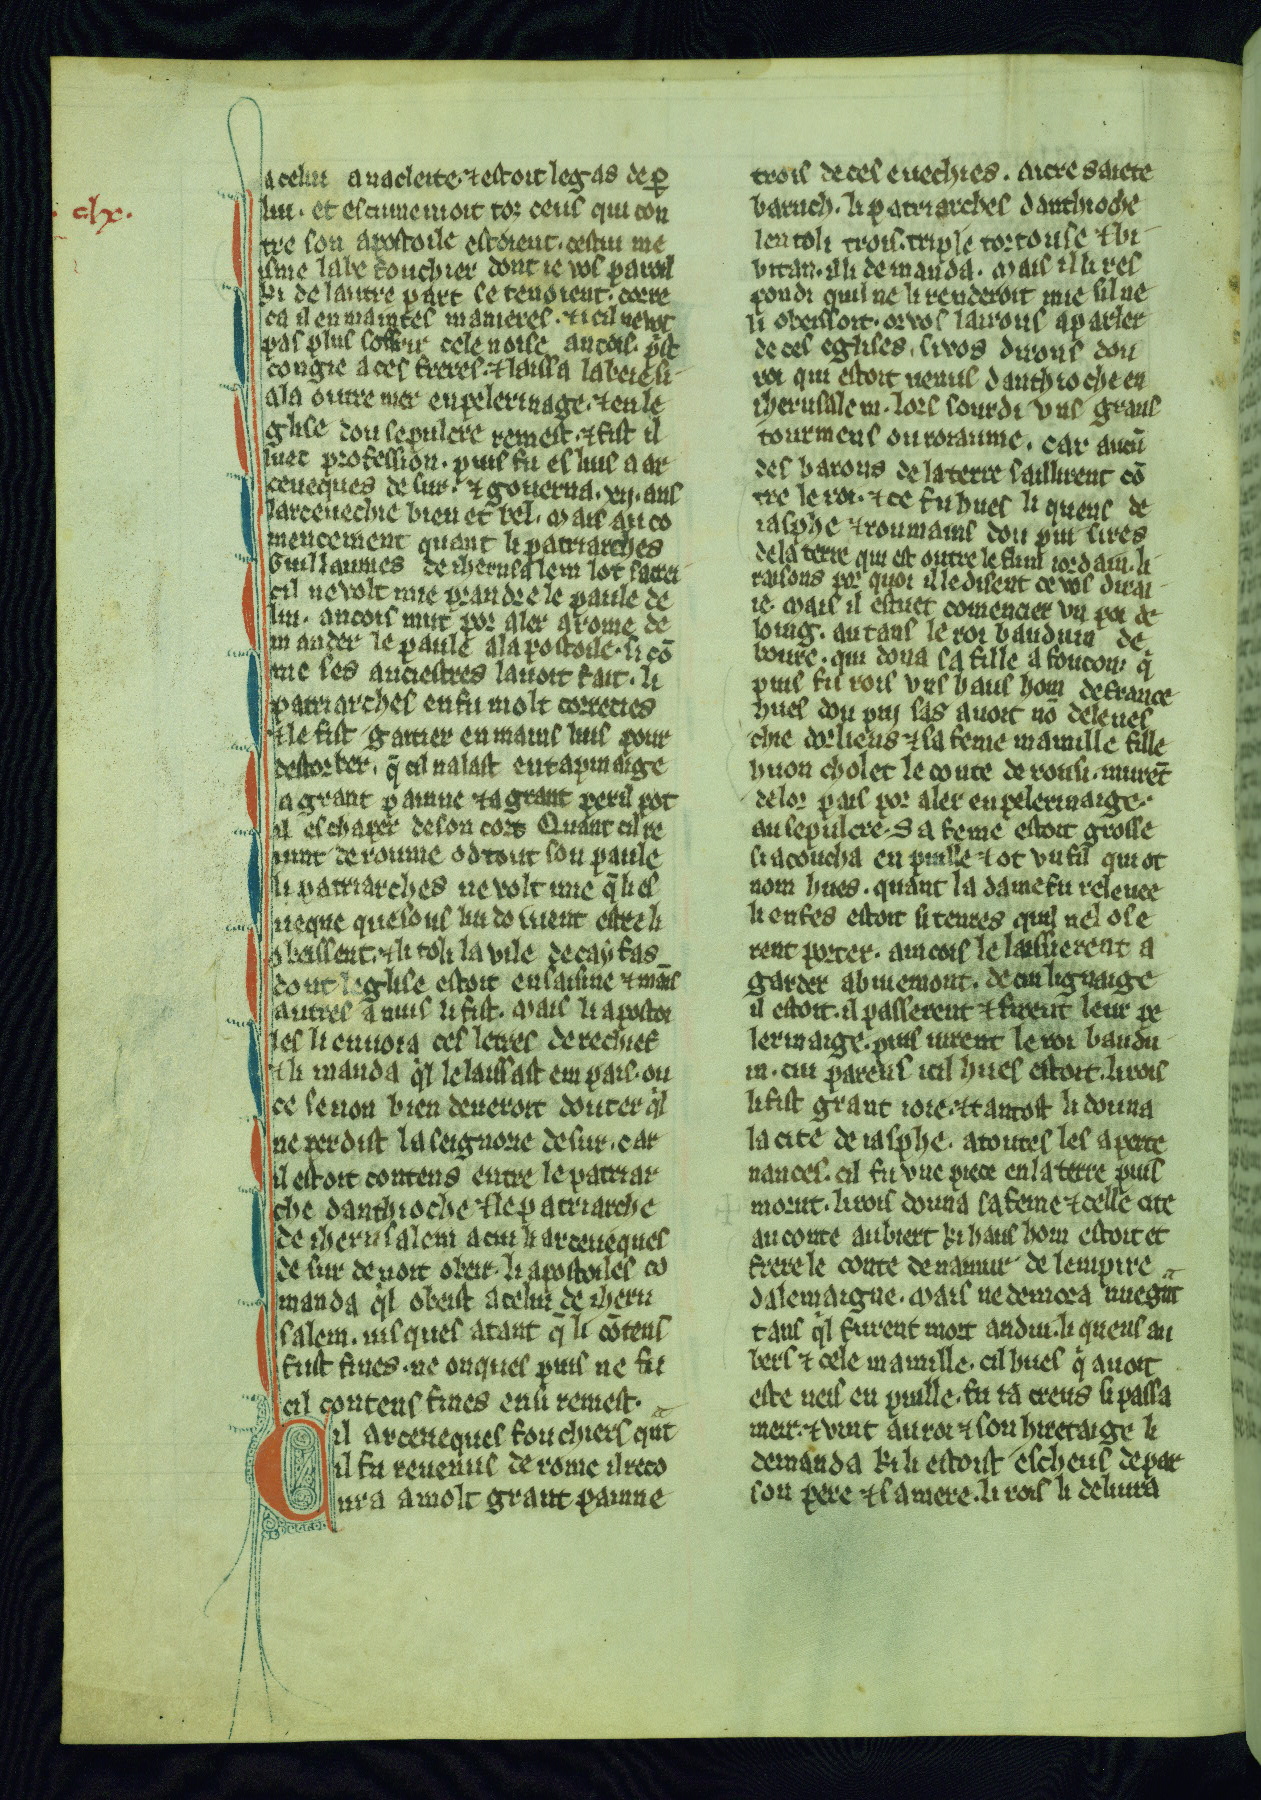 · clx ·
a celui anacleite · ⁊ estoit legas de ꝑ
lui · et escumenioit toz ceus qui con
tre son apostoile estoient · cestui me
isme labe fouchier dont ie vos paroil
ki de lautre part se tenoient · corre
ca il en maintes manieres · ⁊ icil ne vot
pas plus soffrir cele noise ancois · pͥst
congie a ces freres · ⁊ laissa labeie si
ala outre mer en pelerinage · ⁊ en le
glise dou sepulcre remest · ⁊ fist il
luec profession · puis fu eslius a ar
ceueques de sur · ⁊ gouerna · xii · ans
larceuechie bien et bel · mais au co
mencement quant li patriarches
Guillaumes de iherusalem lot sacrei
cil ne volt mie prandre le paule de
lui · ancois mut por aler a rome de
mander le paule a lapostoile · si cō
me ses anciestres lauoit fait · li
patriarches en fu molt correcies
⁊ le fist gaitier en mains lius pour
destorber · q̄ cil nalast en tapinaige
a grant painne ⁊ a grant peril pot
il eschaper de son cors Quant cil re
uint de roume od tout son paule
li patriarches ne volt mie q̄ li es
ueque que sous lui doiuent estre li
obeissent · ⁊ li toli la vile de cayfas
dont leglise estoit en saisine ⁊ mais
autres anuis li fist · mais li apostoi
les li enuoia ces letres de rechief
⁊ li manda qͥl le laissast em pais · ou
ce se non bien deueroit douter qͥl
ne perdist la seignorie de sur · car
il estoit contens entre le patriar
che danthioche ⁊ le patriarche
de iherusalem a cui li arceueques
de sur deuoit obeir · li apostoiles co
manda qͥl obeist a celui de iheru
salem · iusques atant q̄ li cōtens
fust fines · ne onques puis ne fu
cil contens fines ensi remest ·
Cil arceueques fouchiers qnt
il fu reuenus de rome il reco
ura a molt grant painne
trois de ces euechies · aicre saiete
baruch · li patriarches danthioche
len toli trois · triple tortouse ⁊ bi
bitan · il li demanda · mais il li res
pondi quil ne li renderoit mie sil ne
li obeissoit · or vos lairons a parler
de ces eglises · si vos dirons dou
roi qui estoit uenus danthioche en
iherusalem · lors sourdi vns grans
tourmens ou roiaume · car aucū
des barons de la terre saillirent cō
tre le roi · ⁊ ce fu hues li quens de
iasphe ⁊ roumains dou pui sires
de la terre qui est outre le flun iordain · li
raisons por quoi il le disent ce vos dirai
ie · mais il estuet comencier vn poi de
loing · au tans le roi bauduin de
bourc · qui dona sa fille a foucon qͥ
puis fu rois vns haus hom de france
hues dou pui sas auoit nō de leues
chie dorliens ⁊ sa feme mamille fille
huon cholet le conte de rousi · murēt
de lor pais por aler en pelerinaige ·
au sepulcre · Sa feme estoit grosse
si acoucha en puille ⁊ ot vn fil qui ot
nom hues · quant la dame fu releuee
li enfes estoit si tenres quil nel ose
rent porter · aincois le laissierent a
garder a buiemont · de cui lignaige
il estoit · il passerent ⁊ firent leur pe
lerinaige · puis uirent le roi baudu
in · cui parens icil hues estoit · li rois
li fist grant ioie · ⁊ tantost li donna
la cite de iasphe · a toutes les aperte
nances · cil fu vne piece en la terre puis
morut · li rois donna sa feme ⁊ celle cite
au conte aubiert ki haus hom estoit et
frere le conte de namur de lempire
dalemaigne · mais ne demora mie gͣnt
tans qͥl furent mort andui · li quens au
bers ⁊ cele mamille · cil hues qͥ auoit
este neis en puille · fu tā creus si passa
mer · ⁊ vint au roi ⁊ son hiretaige li
demanda ki li estoist escheus de par
son pere ⁊ sa mere · li rois li deliura